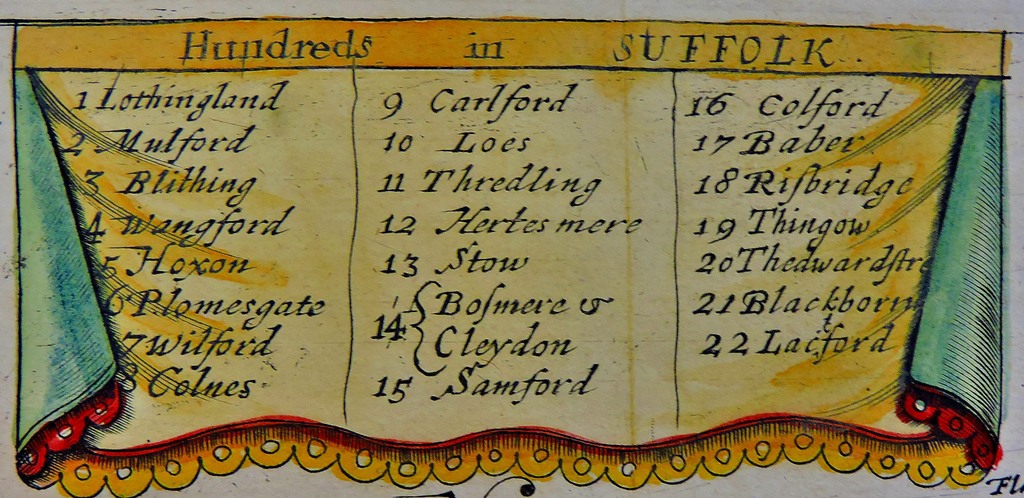 Hundreds in SUFFOLK.
1 Lothingland
2 Mulford
3 Blithing
4 Wangford
5 Hoxon
6 Plomesgate
7 Wilford
8 Colnes
9 Carlford
10 Loes
11 Thredling
12 Hertesmere
13 Stow
14 { Boſmere &
Cleydon
15 Samford
16 Colford
17 Baber
18 Riſbridge
19 Thingow
20 Thedwardſtre
21 Blackborn
22 Lacford